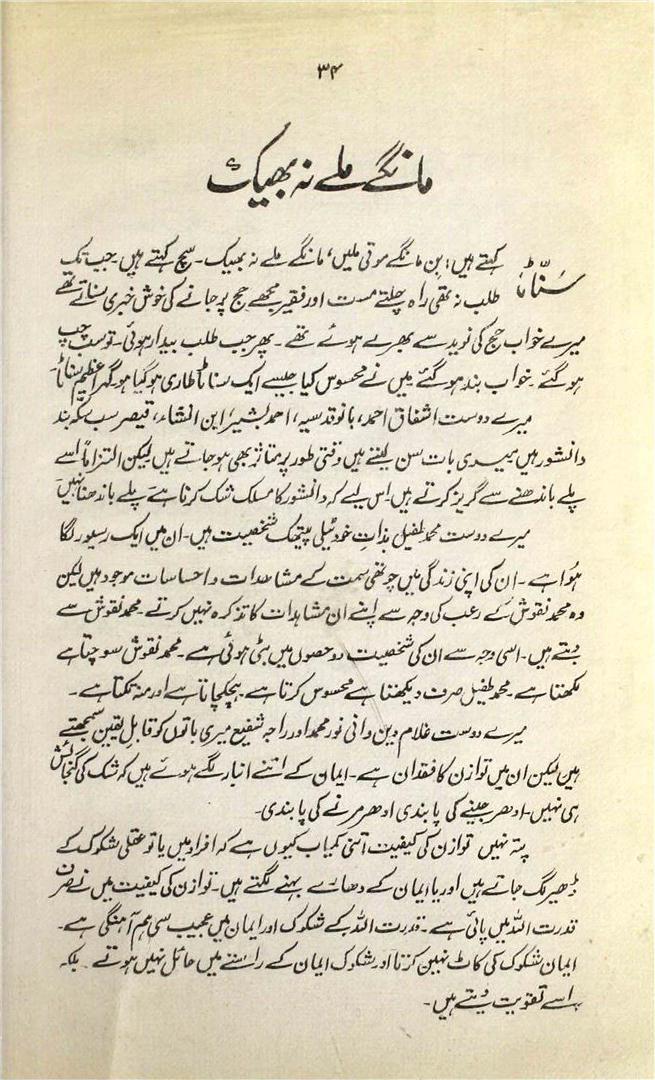 ۳۴
مانگے ملے نہ بھیک
سنّاٹا
کہتے ہیں؛ بن مانگے موتی ملیں، مانگے ملے نہ بھیک۔ سچ کہتے ہیں۔ جب تک
طلب نہ تھی راہ چلتے مست اور فقیر مجھے حج پر جانے کی خوش خبری سناتے تھے
میرے خواب حج کی نوید سے بھرے ہوئے تھے۔ پھر جب طلب بیدار ہوئی۔ تو سب چپ
ہو گئے۔ خواب بند ہو گئے میں نے محسوس کیا جیسے ایک سناٹا طاری ہو گیا ہو۔ گہرا عظیم سناٹا۔
میرے دوست اشفاق احمد، بانو قدسیہ، احمد بشیر، ابن انشاء، قیصر سب سکہ بند
دانشور ہیں میری بات سن لیتے ہیں وقتی طور پر متاثر بھی ہو جاتے ہیں لیکن التزاماً اسے
پلے باندھنے سے گریز کرتے ہیں۔ اس لیے کہ دانشور کا مسلک شک کرنا ہے پلے باندھنا نہیں
میرے دوست محمد طفیل بذات خود ٹیلی پیتھک شخصیت ہیں۔ ان میں ایک رسیور لگا
ہوا ہے۔ ان کی اپنی زندگی میں چوتھی سمت کے مشاهدات و احساسات موجود ہیں لیکن
وہ محمد نقوش کے رعب کی وجہ سے اپنے ان مشاہدات کا تذکرہ نہیں کرتے۔ محمد نقوش سے
دبتے ہیں۔ اسی وجہ سے ان کی شخصیت دو حصوں میں بٹی ہوئی ہے۔ محمد نقوش سوچتا ہے
لکھتا ہے۔ محمد طفیل صرف دیکھتا ہے محسوس کرتا ہے ہچکچاتا ہے اور منہ تکتا ہے۔
میرے دوست غلام دین وانی نور محمد اور راجہ شفیع میری باتوں کو قابل یقین سمجھتے
ہیں لیکن ان میں توازن کا فقدان ہے۔ ایمان کے اتنے انبار لگے ہوئے ہیں کہ شک کی گنجائش
ہی نہیں۔ ادھر جینے کی پابندی ادھر مرنے کی پابندی۔
پتہ نہیں توازن کی کیفیت اتنی کمیاب کیوں ہے کہ افراد میں یا تو عقلی شکوک کے
ڈھیر لگ جاتے ہیں اور یا ایمان کے دھارے بہنے لگتے ہیں۔ توازن کی کیفیت میں نے صرف
قدرت اللہ میں پائی ہے۔ قدرت اللہ کے شکوک اور ایمان میں عجیب سی ہم آہنگی ہے۔
ایمان شکوک کی کاٹ نہیں کرتا اور شکوک ایمان کے راستے میں حائل نہیں ہوتے۔ بلکہ
اسے تقویت دیتے ہیں۔